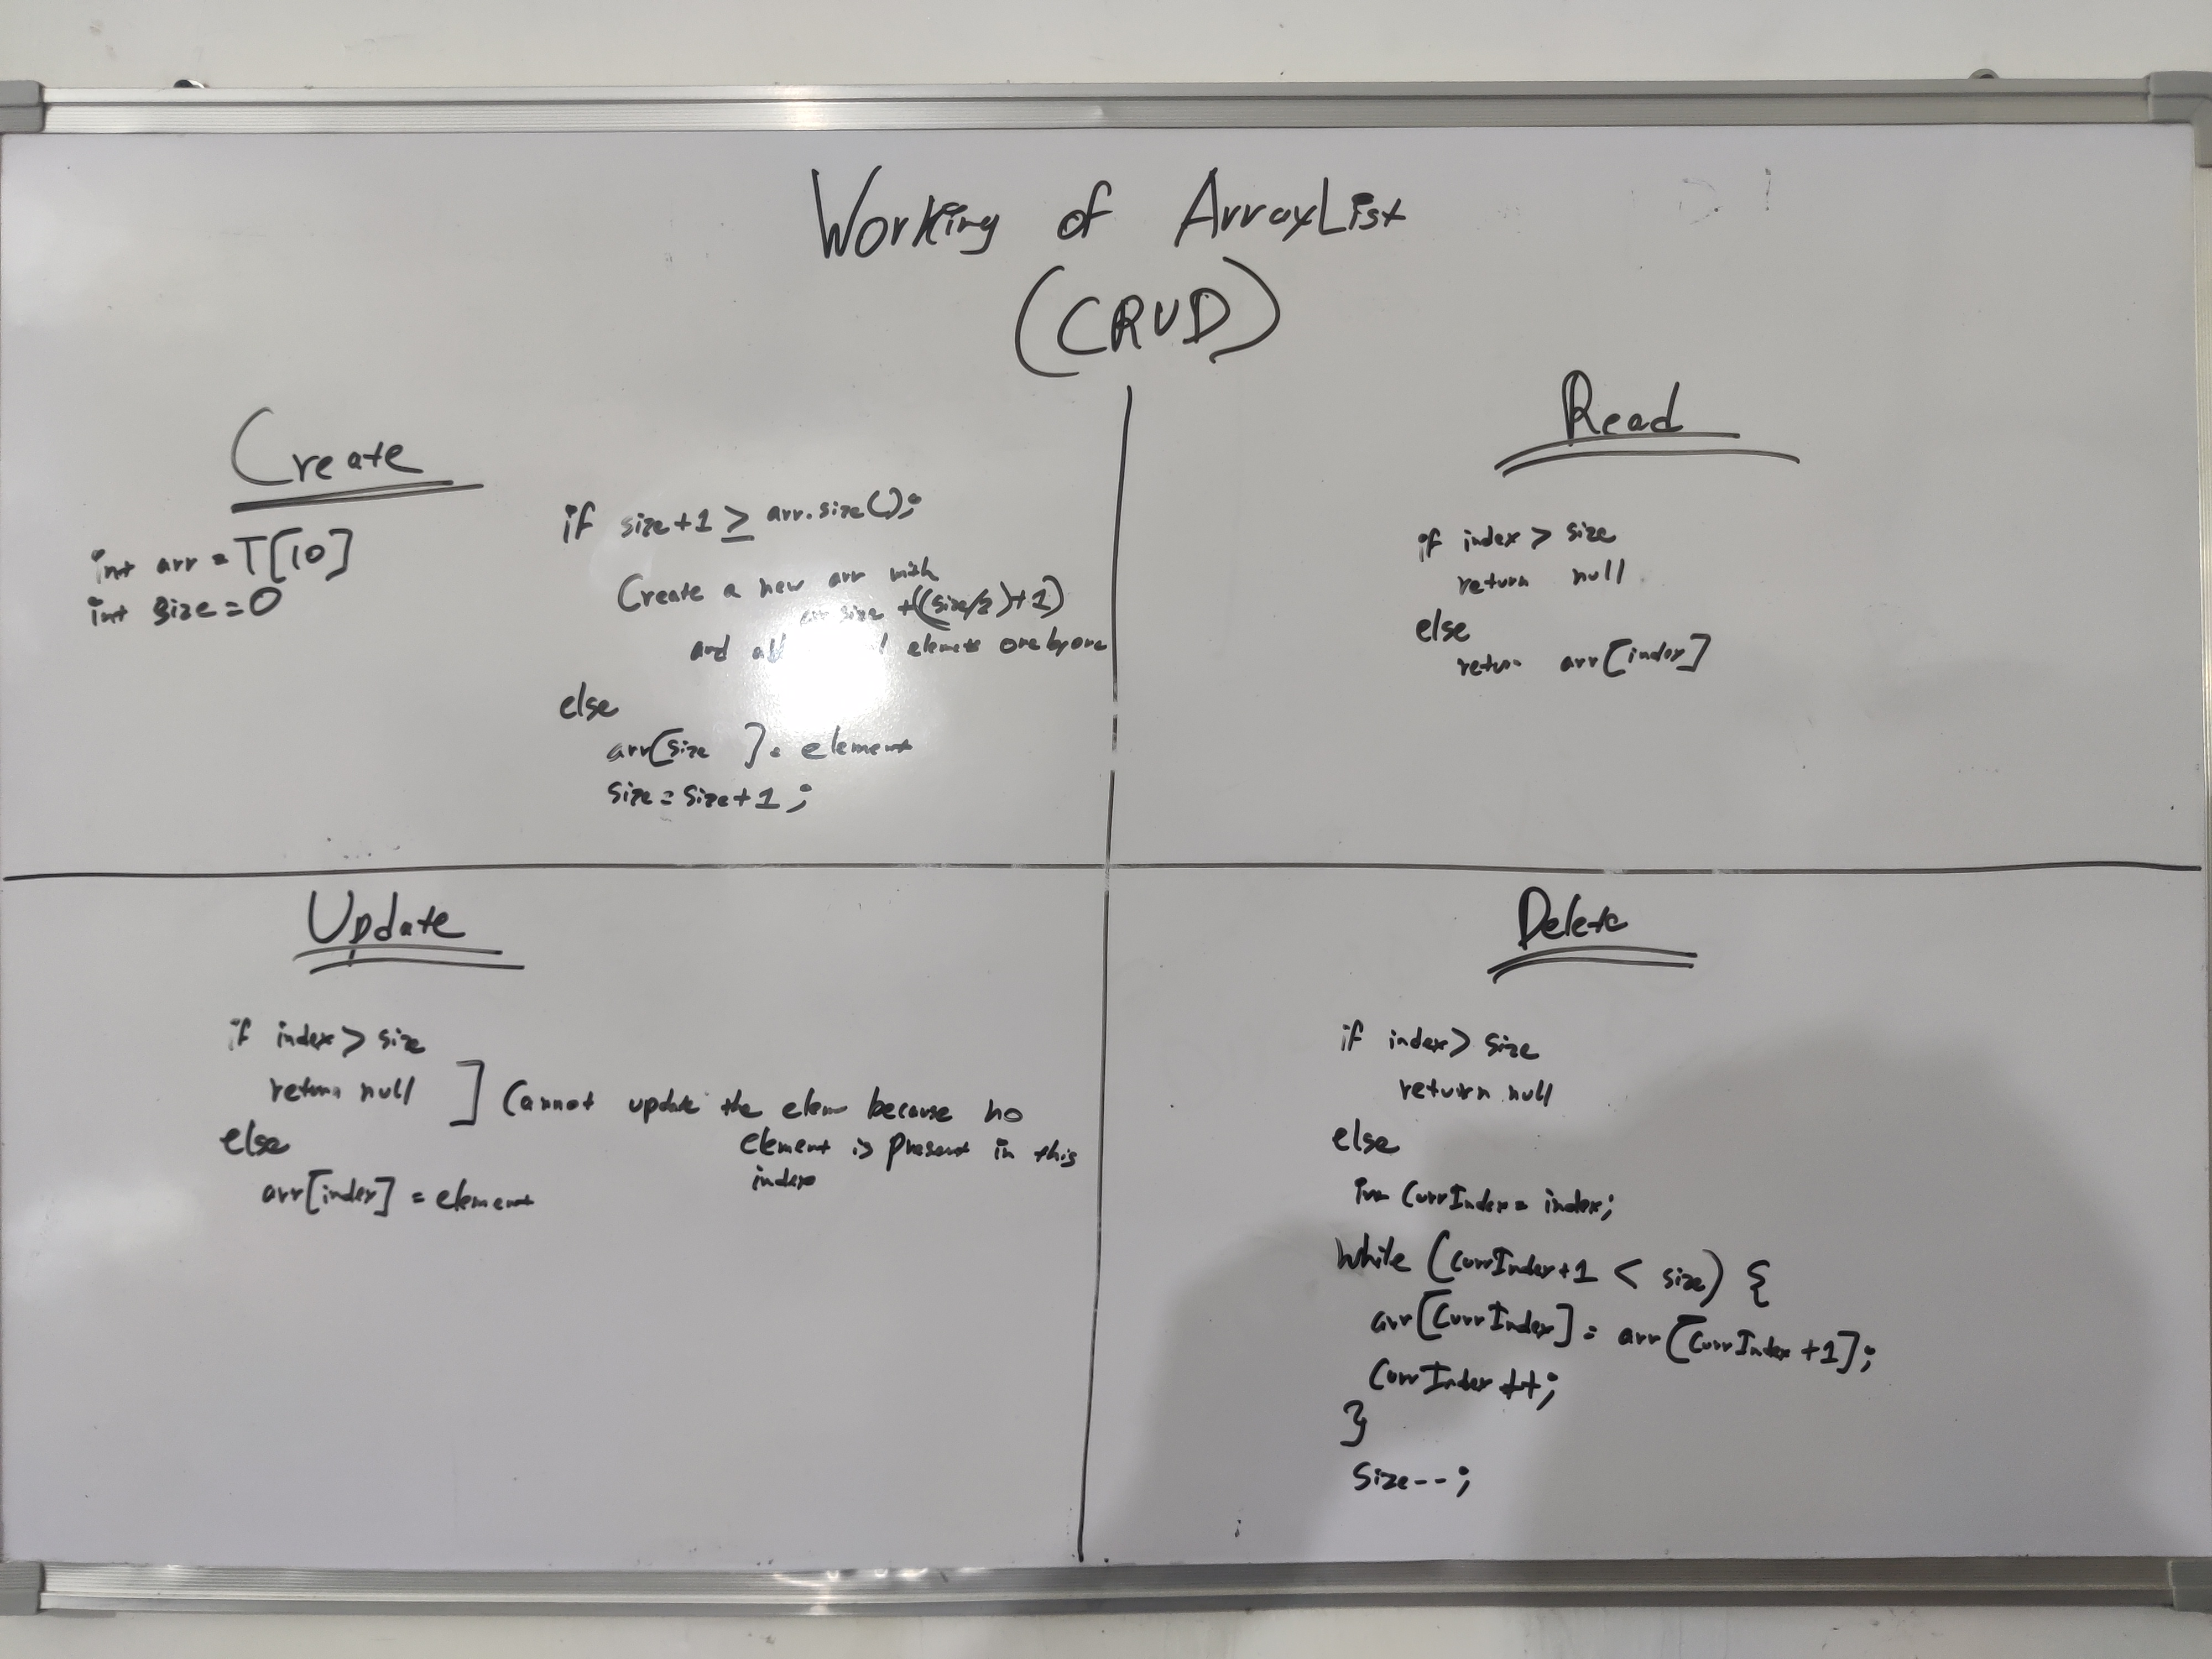 Working of ArrayList
(CRUD)
Create
int arr = T[10]
int size = 0
if size+1 ≥ arr.size();
Create a new arr with
arr size + ((size/2)+1)
and elements one by one
else
arr[size ] = element
size = size+1;
Read
if index > size
return null
else
return arr[index]
Update
if index > size
return null ] Cannot update the elem because no
element is present in this
index
else
arr[index] = element
Delete
if index > size
return null
else
int CurrIndex = index;
while (currIndex+1 < size) {
arr[CurrIndex] = arr[CurrIndex+1];
CurrIndex++;
}
Size--;